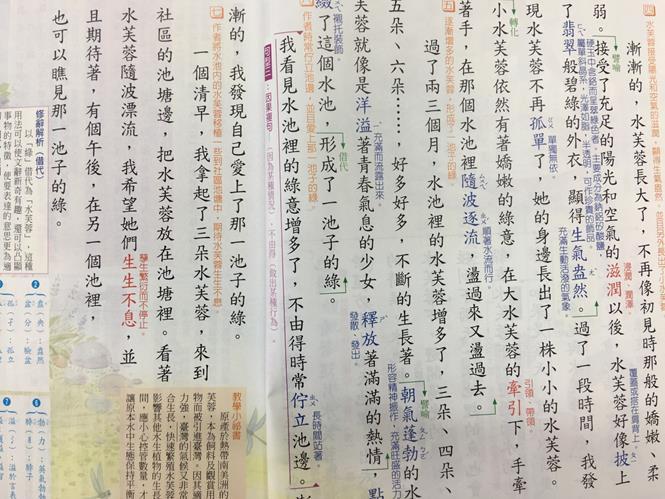 四 水芙蓉接受陽光和空氣的滋潤，顯得生氣盎然
漸漸的，水芙蓉長大了，不再像初見時那般的嬌嫩、柔
弱。接受了充足的陽光和空氣的滋潤以後，水芙蓉好像披上
了翡翠般碧綠的外衣，顯得生氣盎然。過了一段時間，我發
現水芙蓉不再孤單了，她的身邊長出了一株小小的水芙蓉。
小水芙蓉依然有著嬌嫩的綠意，在大水芙蓉的牽引下，手牽
著手，在那個水池裡隨波逐流，盪過來又盪過去。
五 逐漸增多的水芙蓉，形成了一池子的綠
過了兩三個月，水池裡的水芙蓉增多了，三朵、四朵、
五朵、六朵……，好多好多，不斷的生長著。朝氣蓬勃的水
芙蓉就像是洋溢著青春氣息的少女，釋放著滿滿的熱情，點
綴了這個水池，形成了一池子的綠。
作者時常佇立池邊，並且愛上那一池子的綠。
句型三：因果複句——（因為某種情況），不由得（做出某種行為）
我看見水池裡的綠意增多了，不由得時常佇立池邊。漸
漸的，我發現自己愛上了那一池子的綠。
七 作者將水池內的水芙蓉移植一些到社區池塘中，期待水芙蓉生生不息
一個清早，我拿起了三朵水芙蓉，來到
社區的池塘邊，把水芙蓉放在池塘裡。看著
水芙蓉隨波漂流，我希望她們生生不息，並
且期待著，有個午後，在另一個池裡，
也可以瞧見那一池子的綠。
覆蓋或搭在肩背上。
浸潤、潤澤。
充滿生動活潑的氣象。
單獨無依。
引領、帶領。
順著水流而行。
形容精神振作，充滿旺盛的活力
充滿而流露出來。
發散、發出。
襯托裝飾。
長時間站著
孳生繁衍而不停止。
譬喻
轉化
譬喻
借代
教學小祕書
原產於熱帶南美洲的
芙蓉，本為飼料及觀賞用
物而被引進臺灣，因其適
力強，臺灣的氣候又非常
合生長，快速繁殖水芙蓉
影響其他水生植物的生長
間，應小心控管數量，才
讓原本水中生態保持平衡
修辭解析（借代）
以「綠」借代為「水芙蓉」，這種
用法可以使文辭新奇有趣，還可以凸顯
事物的特徵，使要表達的意思更為適